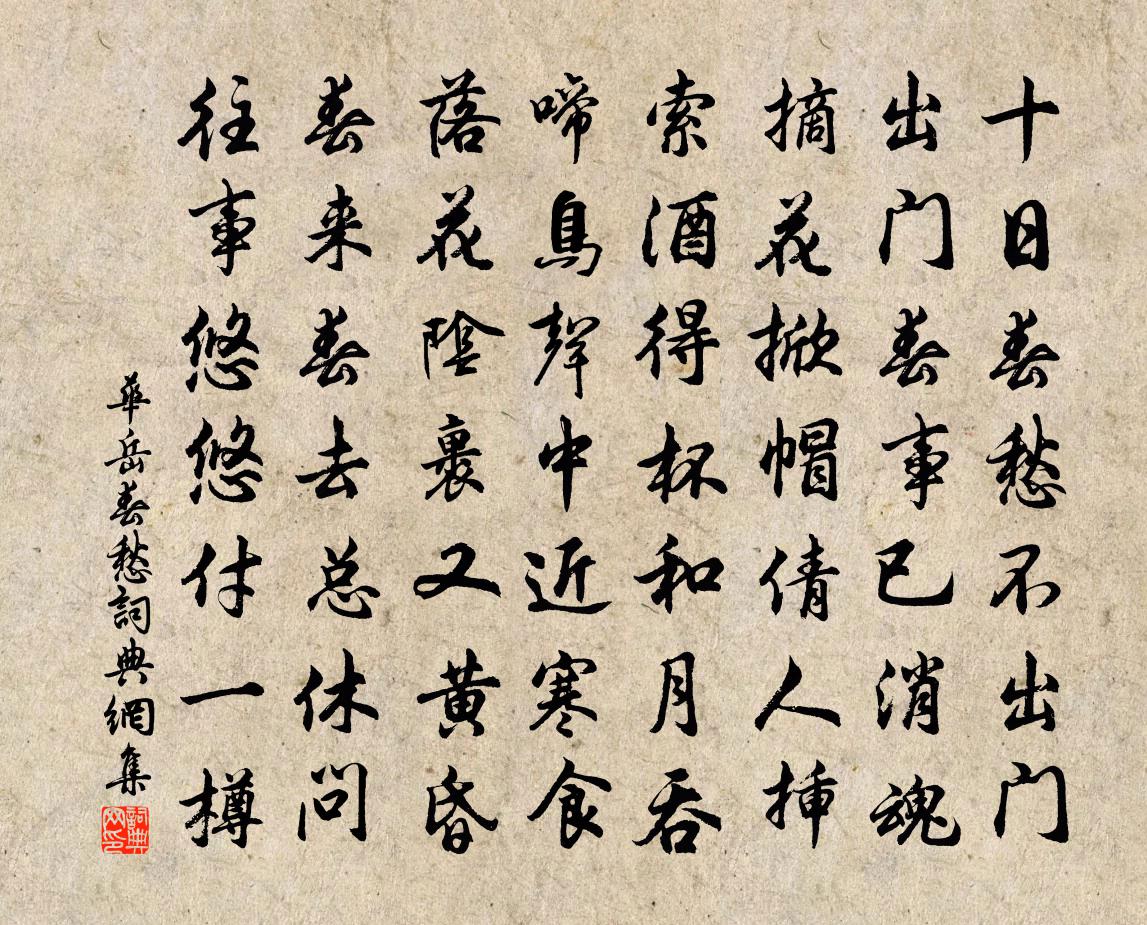 十日春愁不出门
出门春事已消魂
摘花掀帽倩人揷
索酒得杯和月吞
啼鳥聲中近寒食
落花陰裏又黄昏
春来春去总休问
往事悠悠付一樽
華岳春愁詞典網集
詞典网印